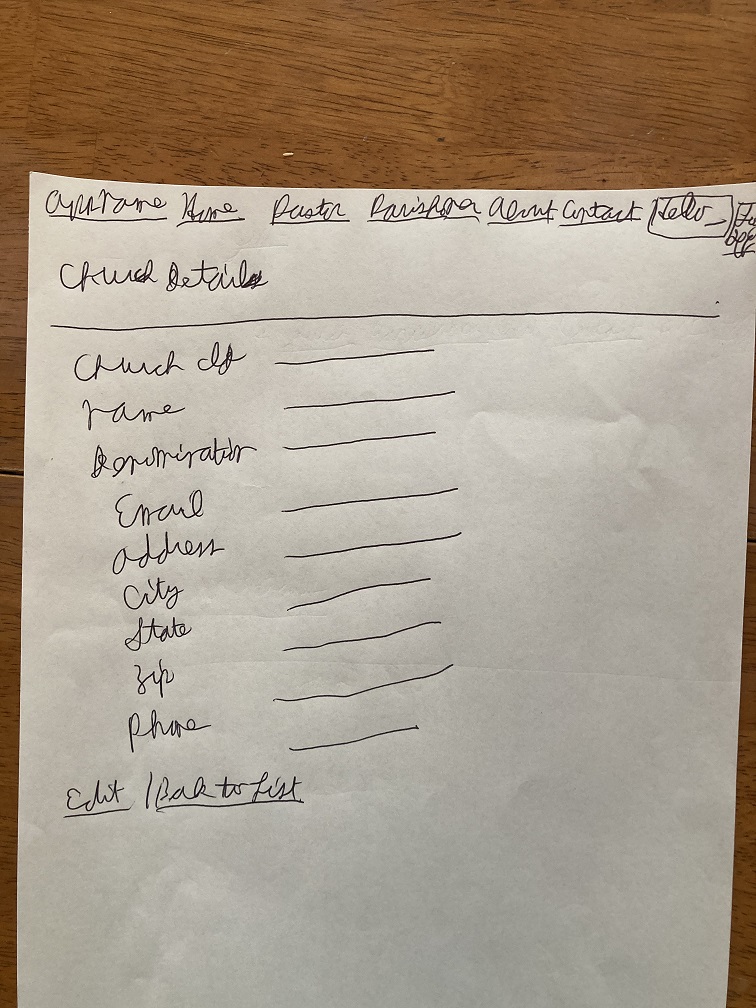 AppName Home Pastor Parishoner About Contact Hello
Church Details
Church Id
Name
Denomination
Email
Address
City
State
Zip
Phone
Edit / Bak to List